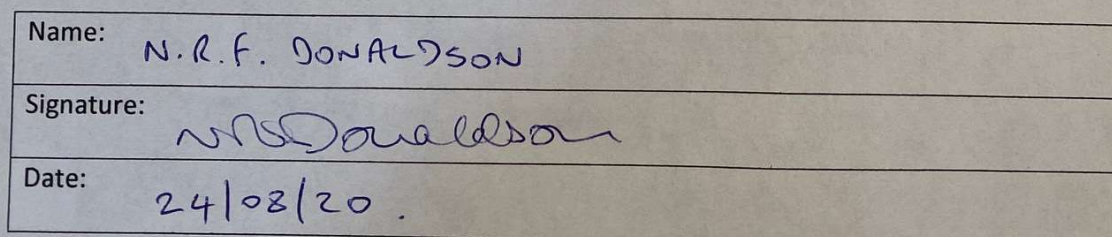 Name: N.R.F. DONALDSON
Signature: NRF Donaldson
Date: 24/08/20.